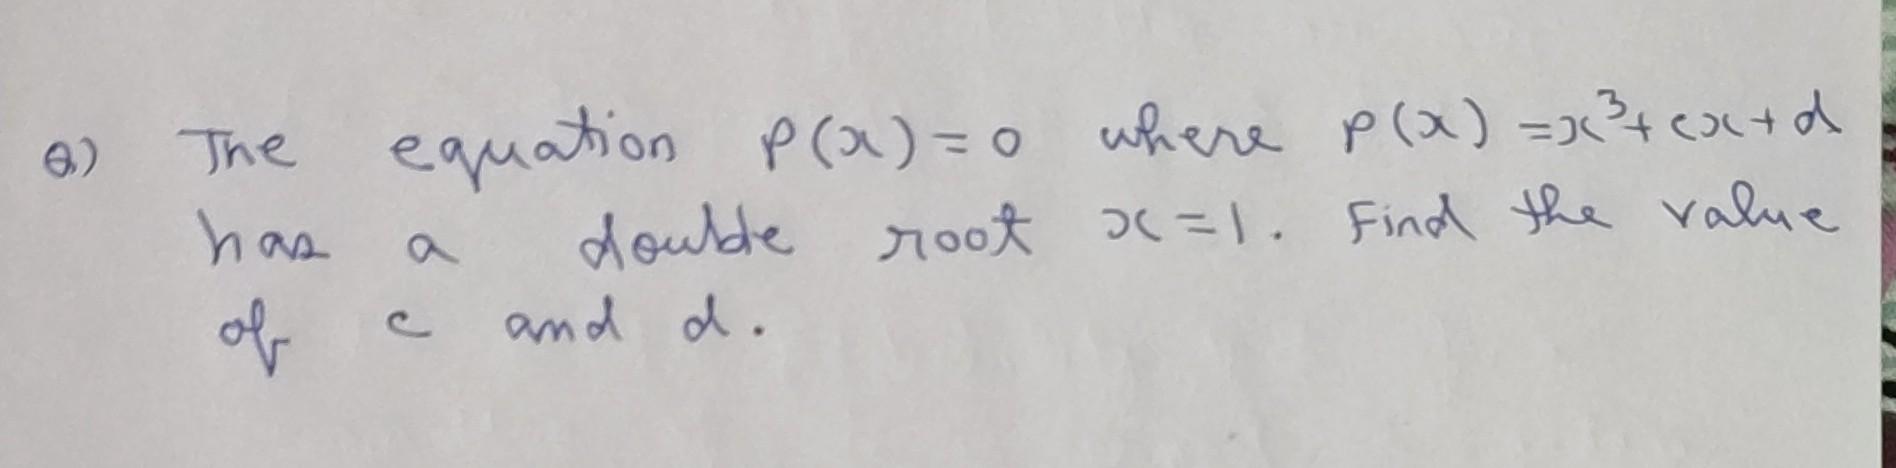 Q) The equation P(x)=0 where p(x) =x³+cx+d
has a double root x=1. Find the value
of c and d.